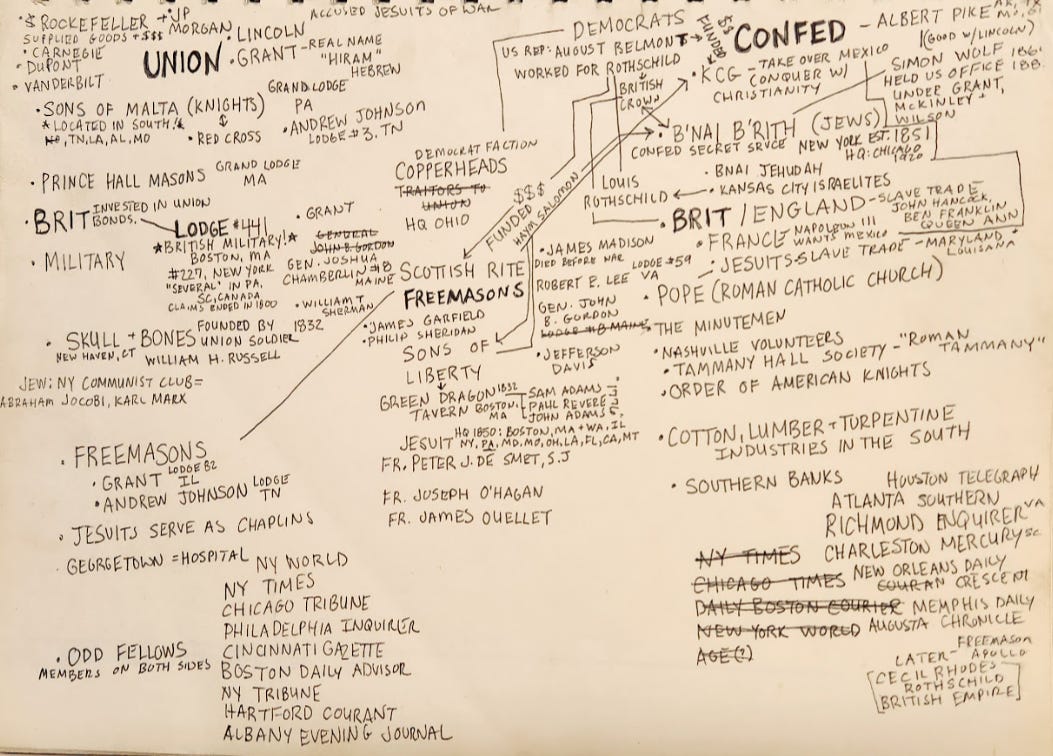 ACCUSED JESUITS OF WAR
$ ROCKEFELLER + JP MORGAN
SUPPLIED GOODS + $$$
• CARNEGIE
• DUPONT
• VANDERBILT
UNION
• LINCOLN
• GRANT - REAL NAME
"HIRAM"
HEBREW
GRAND LODGE
PA
• SONS OF MALTA (KNIGHTS)
* LOCATED IN SOUTH!*
TN, LA, AL, MO
• RED CROSS
• ANDREW JOHNSON
LODGE #3, TN
• PRINCE HALL MASONS GRAND LODGE
MA
• BRIT INVESTED IN UNION
BONDS.
LODGE #441
*BRITISH MILITARY!*
BOSTON, MA
#227, NEW YORK
"SEVERAL" IN PA,
SC, CANADA
CLAIMS ENDED IN 1800
• MILITARY
• GRANT
GENERAL
JOHN B. GORDON
GEN. JOSHUA
CHAMBERLIN #8
MAINE
• WILLIAM T
SHERMAN
• SKULL + BONES FOUNDED BY 1832
UNION SOLDIER
NEW HAVEN, CT WILLIAM H. RUSSELL
JEW: NY COMMUNIST CLUB =
ABRAHAM JOCOBI, KARL MARX
• FREEMASONS
• GRANT LODGE 82
IL
• ANDREW JOHNSON LODGE
TN
• JESUITS SERVE AS CHAPLINS
• GEORGETOWN = HOSPITAL
NY WORLD
NY TIMES
CHICAGO TRIBUNE
PHILADELPHIA INQUIRER
CINCINNATI GAZETTE
BOSTON DAILY ADVISOR
NY TRIBUNE
HARTFORD COURANT
ALBANY EVENING JOURNAL
• ODD FELLOWS
MEMBERS ON BOTH SIDES
DEMOCRATS
US REP: AUGUST BELMONT
WORKED FOR ROTHSCHILD
BRITISH
CROWN
$$
FUNDED
DEMOCRAT FACTION
COPPERHEADS
TRAITORS TO
UNION
HQ OHIO
$$$
FUNDED
HAYM SALOMON
LOUIS
ROTHSCHILD
SCOTTISH RITE
FREEMASONS
• JAMES GARFIELD
• PHILIP SHERIDAN
SONS OF
LIBERTY
GREEN DRAGON 1832
TAVERN BOSTON,
MA
SAM ADAMS
PAUL REVERE
JOHN ADAMS
JESUIT HQ 1850: BOSTON, MA + WA, IL
NY, PA, MD, MO, OH, LA, FL, CA, MT
FR. PETER J. DE SMET, S.J
FR. JOSEPH O'HAGAN
FR. JAMES OUELLET
• JAMES MADISON
DIED BEFORE WAR
ROBERT E. LEE LODGE #59
VA
GEN. JOHN
B. GORDON
LODGE #8 MAINE
• JEFFERSON
DAVIS
CONFED
- ALBERT PIKE
(GOOD W/ LINCOLN)
• KCG - TAKE OVER MEXICO
CONQUER W/
CHRISTIANITY
SIMON WOLF
HELD US OFFICE
UNDER GRANT,
MCKINLEY +
WILSON
• B'NAI B'RITH (JEWS)
CONFED SECRET SRVCE NEW YORK EST. 1851
HQ: CHICAGO
1920
• BNAI JEHUDAH
• KANSAS CITY ISRAELITES
• BRIT / ENGLAND - SLAVE TRADE
JOHN HANCOCK,
BEN FRANKLIN
QUEEN ANN
• FRANCE NAPOLEON III
WANTS MEXICO
• JESUITS - SLAVE TRADE - MARYLAND +
LOUISANA
• POPE (ROMAN CATHOLIC CHURCH)
• THE MINUTEMEN
• NASHVILLE VOLUNTEERS
• TAMMANY HALL SOCIETY - "ROMAN
TAMMANY"
• ORDER OF AMERICAN KNIGHTS
• COTTON, LUMBER + TURPENTINE
INDUSTRIES IN THE SOUTH
• SOUTHERN BANKS
HOUSTON TELEGRAPH
ATLANTA SOUTHERN
RICHMOND ENQUIRER VA
CHARLESTON MERCURY SC
NEW ORLEANS DAILY
CRESCENT
MEMPHIS DAILY
AUGUSTA CHRONICLE
NY TIMES
CHICAGO TIMES
DAILY BOSTON COURIER
NEW YORK WORLD
AGE(?)
FREEMASON
LATER - APOLLO
[CECIL RHODES
ROTHSCHILD
BRITISH EMPIRE]